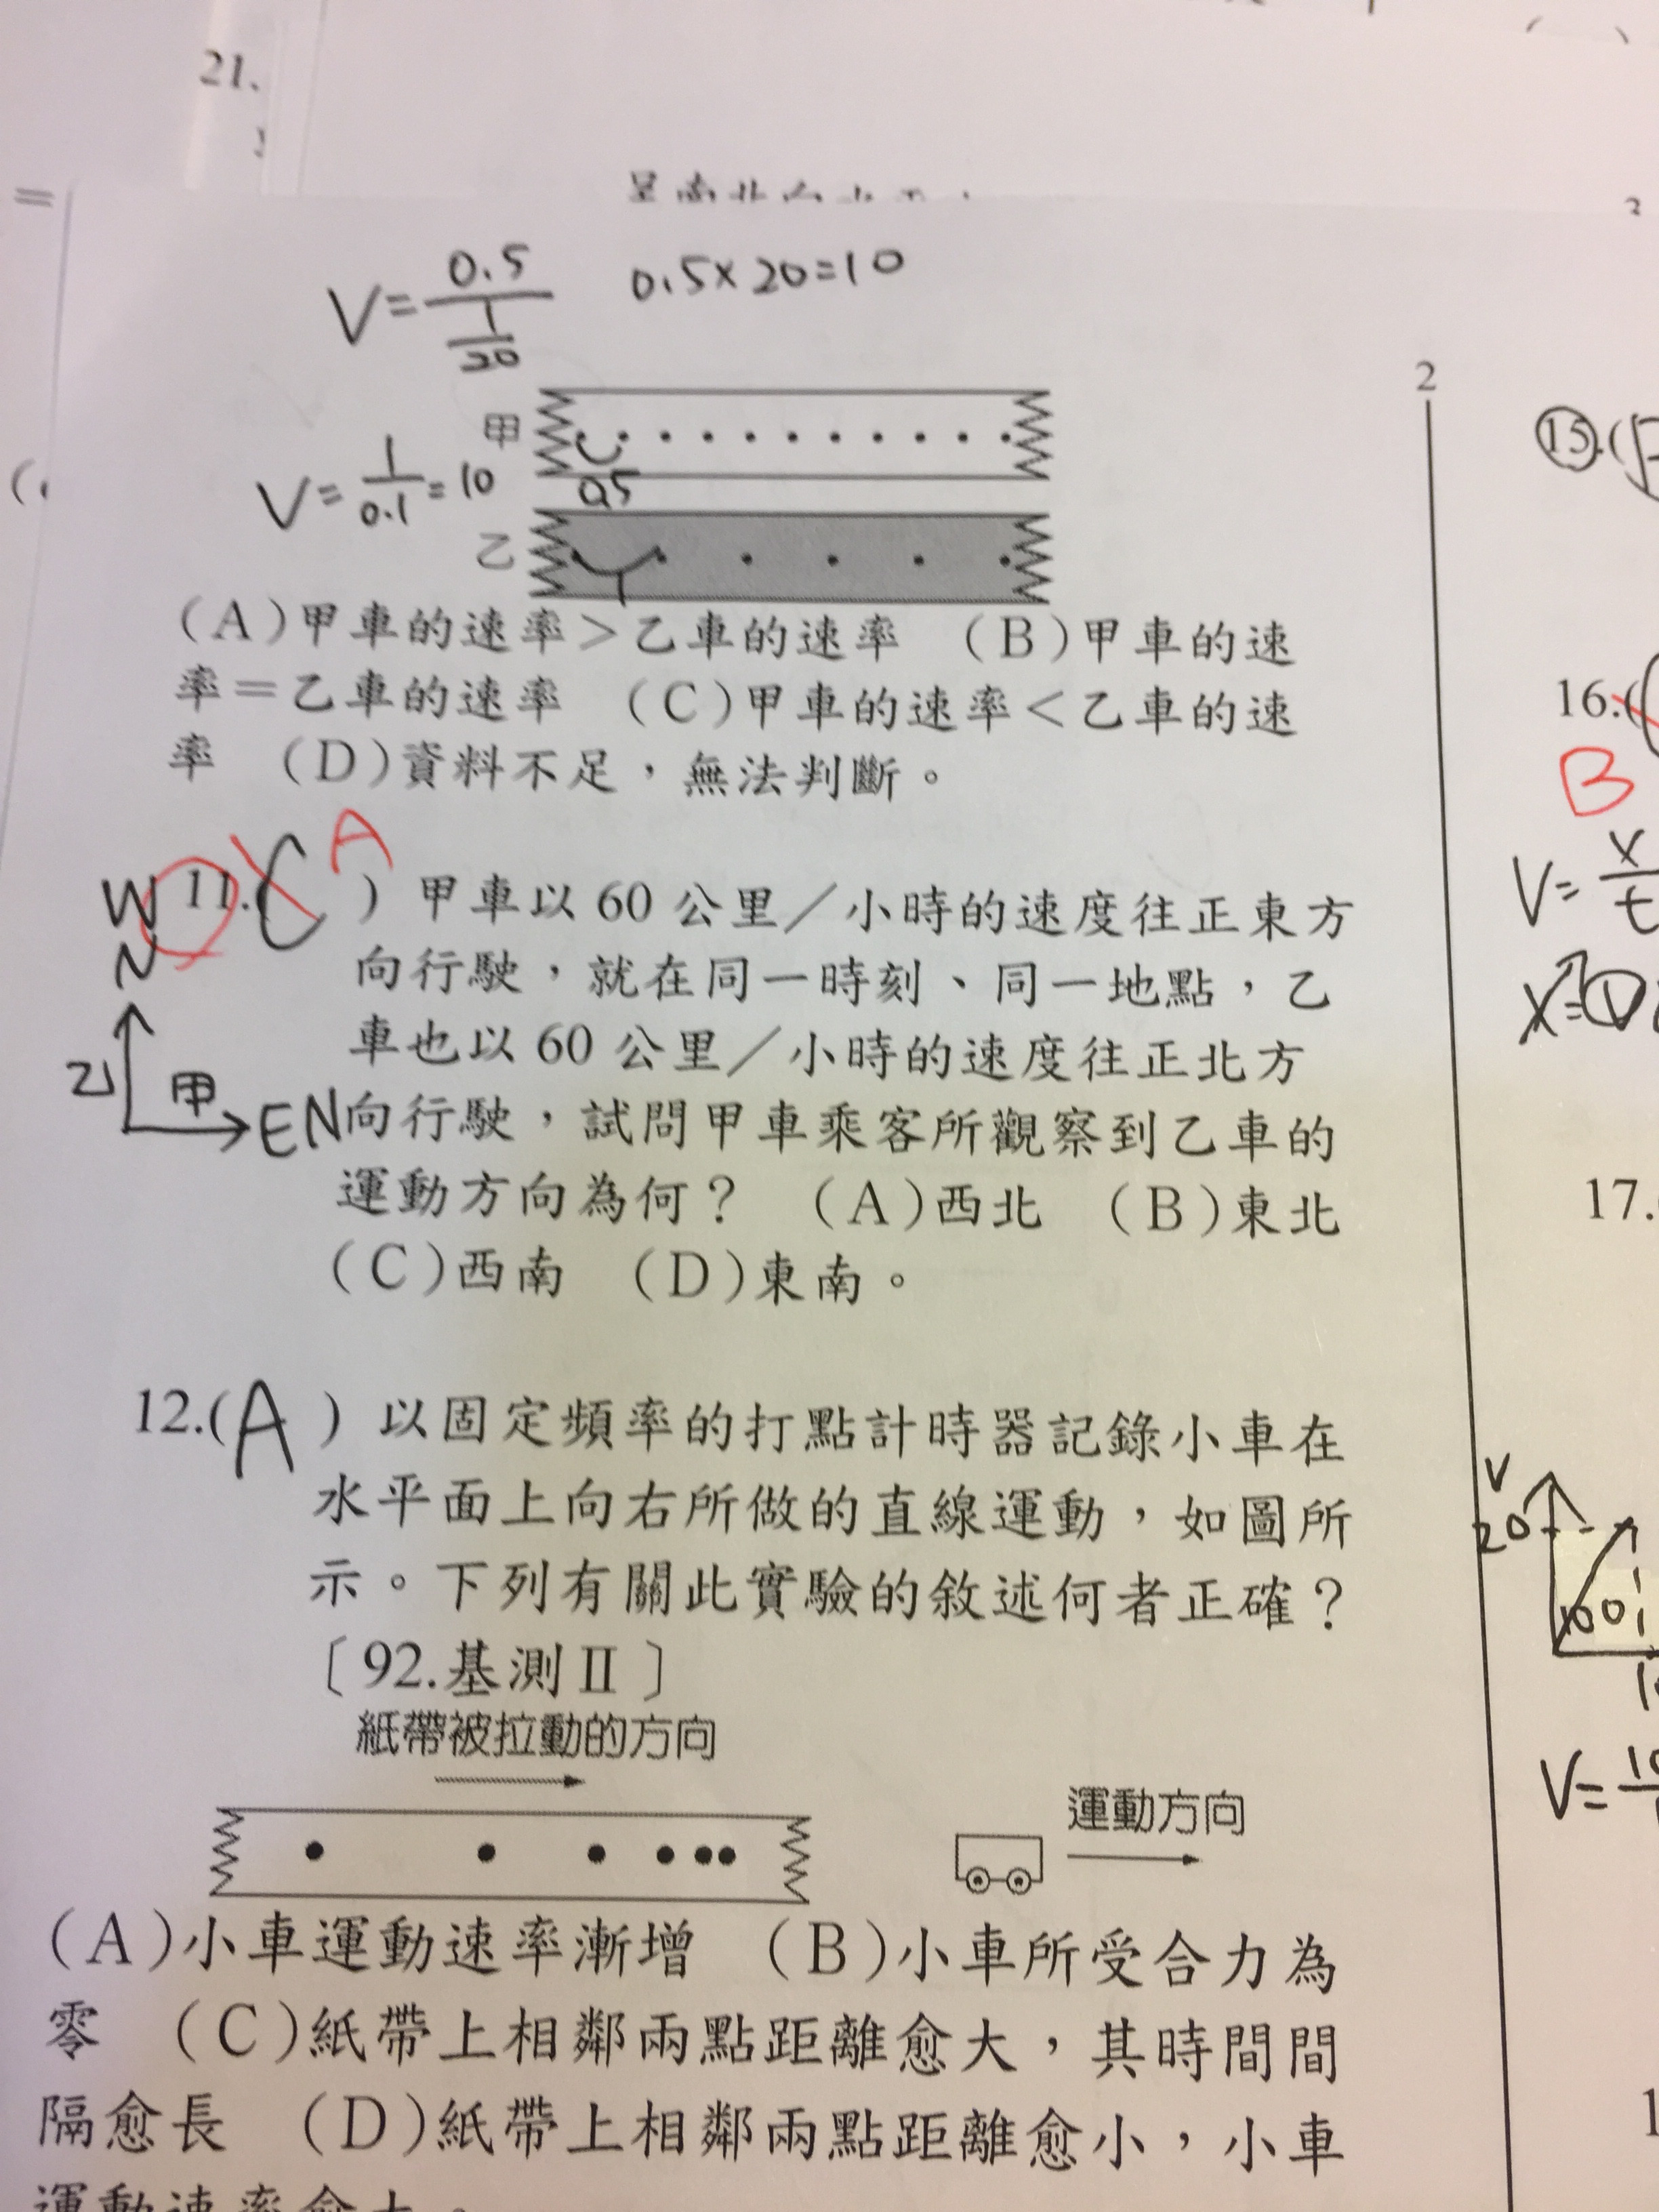 21.
=
V = 0.5 / (1/20)
0.5 × 20 = 10
甲
0.5
V = 1/0.1 = 10
乙
1
(A)甲車的速率>乙車的速率 (B)甲車的速
率=乙車的速率 (C)甲車的速率<乙車的速
率 (D)資料不足,無法判斷。
A
W 11.(C )甲車以 60 公里/小時的速度往正東方
N
向行駛,就在同一時刻、同一地點,乙
車也以 60 公里/小時的速度往正北方
乙 甲
EN
向行駛,試問甲車乘客所觀察到乙車的
運動方向為何? (A)西北 (B)東北
(C)西南 (D)東南。
12.(A )以固定頻率的打點計時器記錄小車在
水平面上向右所做的直線運動,如圖所
示。下列有關此實驗的敘述何者正確?
〔92.基測Ⅱ〕
紙帶被拉動的方向
運動方向
(A)小車運動速率漸增 (B)小車所受合力為
零 (C)紙帶上相鄰兩點距離愈大,其時間間
隔愈長 (D)紙帶上相鄰兩點距離愈小,小車
運動速率愈大。
2
15.(
16.(
B
V = x/t
17.
V
20
100
V =